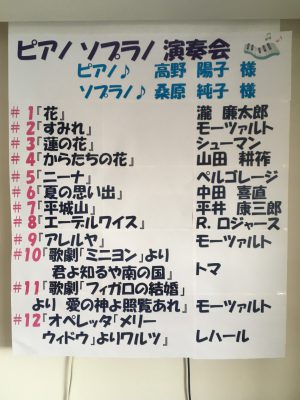 ピアノ ソプラノ 演奏会
ピアノ♪ 高野 陽子 様
ソプラノ♪ 桑原 純子 様
#1『花』 瀧 廉太郎
#2『すみれ』 モーツァルト
#3『蓮の花』 シューマン
#4『からたちの花』 山田 耕筰
#5『ニーナ』 ペルゴレージ
#6『夏の思い出』 中田 喜直
#7『平城山』 平井 康三郎
#8『エーデルワイス』 R. ロジャース
#9『アレルヤ』 モーツァルト
#10『歌劇「ミニヨン」より
君よ知るや南の国』 トマ
#11『歌劇「フィガロの結婚」
より 愛の神よ照覧あれ』 モーツァルト
#12『オペレッタ「メリー
ウィドウ」よりワルツ』 レハール